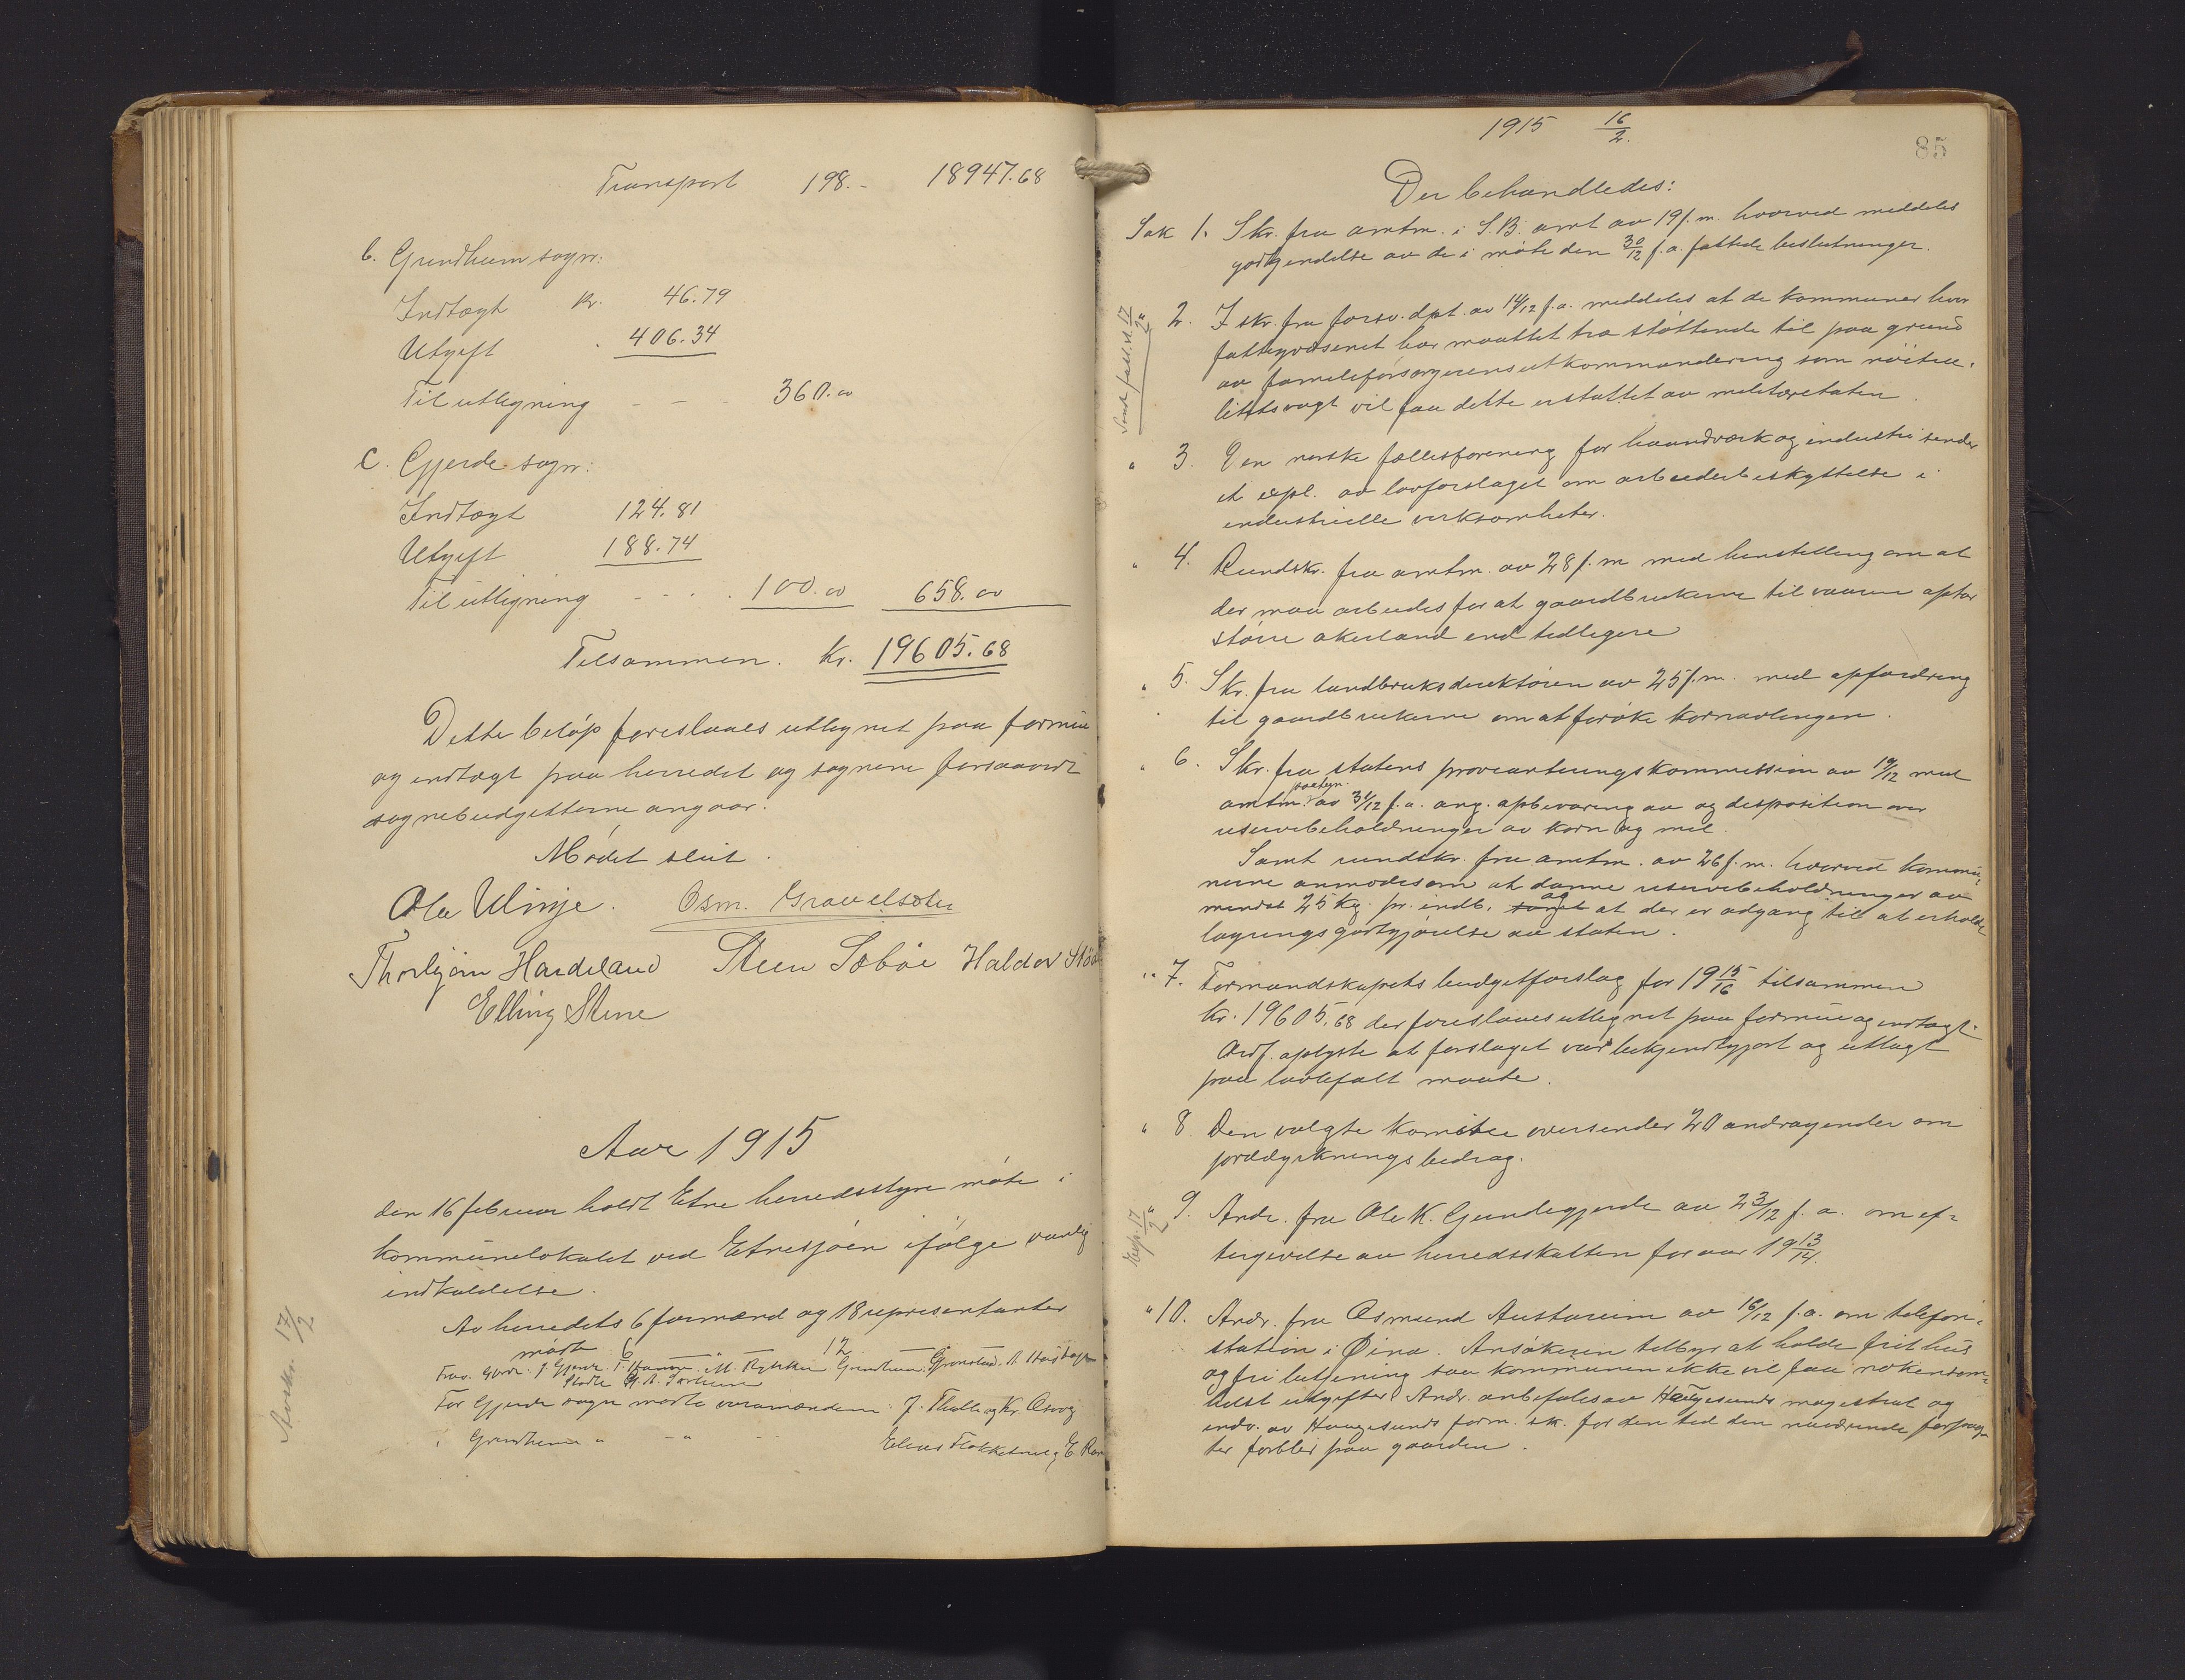 Transport 198.- 18947.68
b. Grindheim sogn:
Indtægt kr. 46.79
Utgift 406.34
Til utligning - - - 360.00
C. Gjerde sogn:
Indtægt 124.81
Utgift 188.74
Til utligning - - - 100.00 658.00
Tilsammen. Kr. 19605.68
Dette beløp foreslaaes utlignet paa formue
og indtægt paa herredet og sognene forsaavidt
sognebudgetterne angaar.
Mødet slut.
Ole Ulvije. Osm. Gravelsæter
Thorbjørn Hardeland Steen Sæbøe Haldor
Elling Stene
Aar 1915
den 16 februar holdt Etne herredsstyre møte i
kommunelokalet ved Etnesjøen ifølge vanlig
indkaldelse.
Av herredets 6 formænd og 18 repræsentanter
møtte 6 — " — 12 —
Frav. M. Grindheim, Grønstad
For Gjerde sogn møtte varamændene: J. Thalle og Kr. Osvog
" Grindheim " - " - Elias og E.
Avskr. 17/2
1915 16/2.
85
Der behandledes:
Sak 1. Skr. fra amtm. i S.B. amt av 19 f.m. hvorved meddeles
godkjendelse av de i møte den 30/12 f.a. fattede beslutninger.
" 2. I skr. fra forsv. dpt. av 14/12 f.a. meddeles at de kommuner hvor
fattigvæsenet har maattet træ støttende til paa grund
av familieforsørgerens utkommandering som nøitra-
litetsvagt vil faa dette erstattet av militæretaten.
" 3. Den norske fællesforening for haandverk og industri sender
et expl. av lovforslaget om arbeiderbeskyttelse i
industrielle virksomheter.
" 4. Rundskr. fra amtm. av 28 f.m. med henstilling om at
der maa arbeides for at gaardbrukerne til vaaren optar
større akerland end tidligere
" 5. Skr. fra landbruksdirektøren av 25 f.m. med opfordring
til gaardbrukerne om at forøke kornavlingen.
" 6. Skr. fra statens provianteringskommission av 19/12 med
amtm. paategn. av 31/12 f.a. ang. opbevaring av og disposition over
reservebeholdninger av korn og mel.
Samt rundskr. fra amtm. av 26 f.m. hvorved kommu-
nerne anmodes om at danne reservebeholdninger av
mindst 25 kg. pr. indb. og at der er adgang til at erholde
lagringsgodtgjørelse av staten.
" 7. Formandskapets budgetforslag for 1915/16 tilsammen
kr. 19605.68 der foreslaaes utlignet paa formue og indtægt.
Ordf. oplyste at forslaget var bekjendtgjort og utlagt
paa lovbefalt maate.
" 8. Den valgte komitee oversender 20 andragender om
jorddyrkningsbidrag.
" 9. Andr. fra Ole K. Grindegjerde av 23/12 f.a. om ef-
tergivelse av herredsskatten for aar 1913/14.
Exp. 17/2
" 10. Andr. fra Osmund Austarheim av 16/12 f.a. om telefon-
station i Øina. Ansøkeren tilbyr at holde frit hus
og fri betjening saa kommunen ikke vil faa nokensom-
helst utgifter. Andr. anbefales av Haugesunds magistrat og
indv. av Haugesunds form. sk. for den tid den nuværende forpag-
ter forblir paa gaarden.